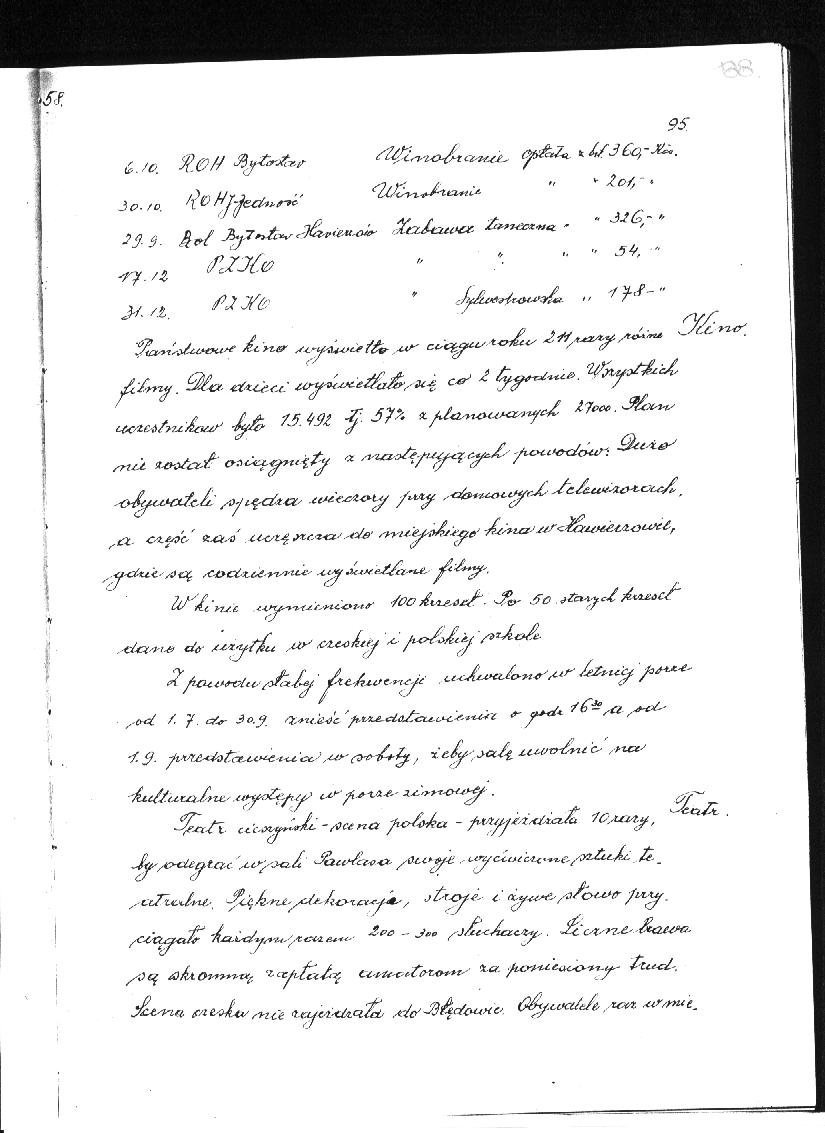 88.
58.
95.
6.10. ROH Bytostav Winobranie opłata z bil. 360,- Kčs.
30.10. ROHJ-Jedność Winobranie " " 201,- "
29.9. Bytostav Havierzów Zabawa taneczna " " 326,- "
17.12 PZKO " " " " 54,- "
31.12. PZKO " Sylwestrowska " 178-"
Państwowe kino wyświetło w ciągu roku 211 razy różne Kino.
filmy. Dla dzieci wyświetlało się co 2 tygodnie. Wszystkich
uczestników było 15.492 tj. 57% z planowanych 27000. Plan
nie został osiągnięty z następujących powodów: Dużo
obywateli spędza wieczory przy domowych telewizorach,
a część zaś uczęszcza do miejskiego kina w Hawierzowie,
gdzie są codziennie wyświetlane filmy.
W kinie wymieniono 100 krzeseł. Po 50 starych krzeseł
dano do użytku w czeskiej i polskiej szkole
Z powodu słabej frekwencji uchwalono w letniej porze
od 1.7. do 30.9. znieść przedstawienia o godz 16³⁰ a od
1.9. przedstawienia w soboty, żeby salę uwolnić na
kulturalne występy w porze zimowej.
Teatr cieszyński - scena polska - przyjeżdżała 10 razy, Teatr.
by odegrać w sali Pawlasa swoje wyćwiczone sztuki te-
atralne. Piękne dekoracje, stroje i żywe słowo przy-
ciągało każdym razem 200 - 300 słuchaczy. Liczne brawa
są skromną zapłatą amatorom za poniesiony trud.
Scena czeska nie zajeżdżała do Błędowic. Obywatele raz w mie-